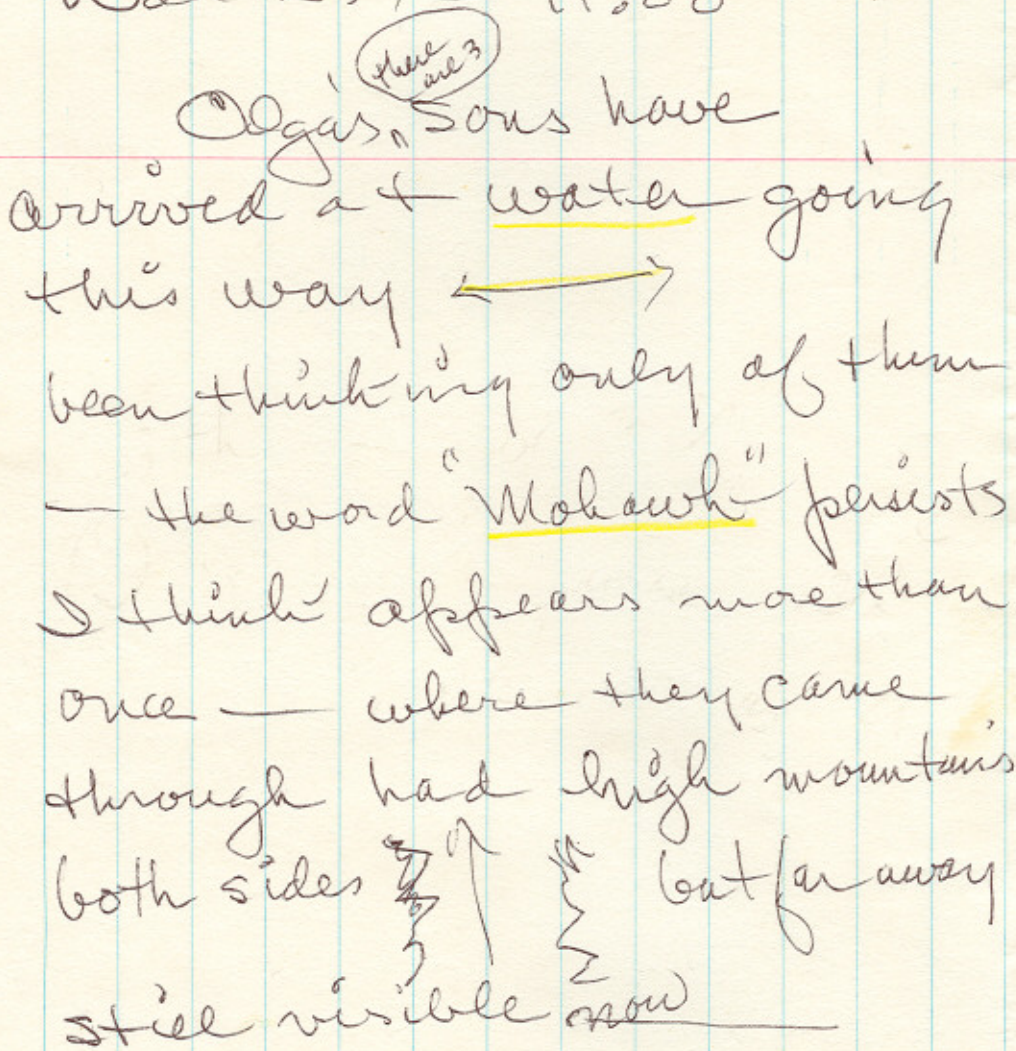 there
are 3
Olga's sons have
arrived at water going
this way
been thinking only of them
— the word "Mohawk" persists
I think appears more than
once — where they came
through had high mountains
both sides but far away
still visible now